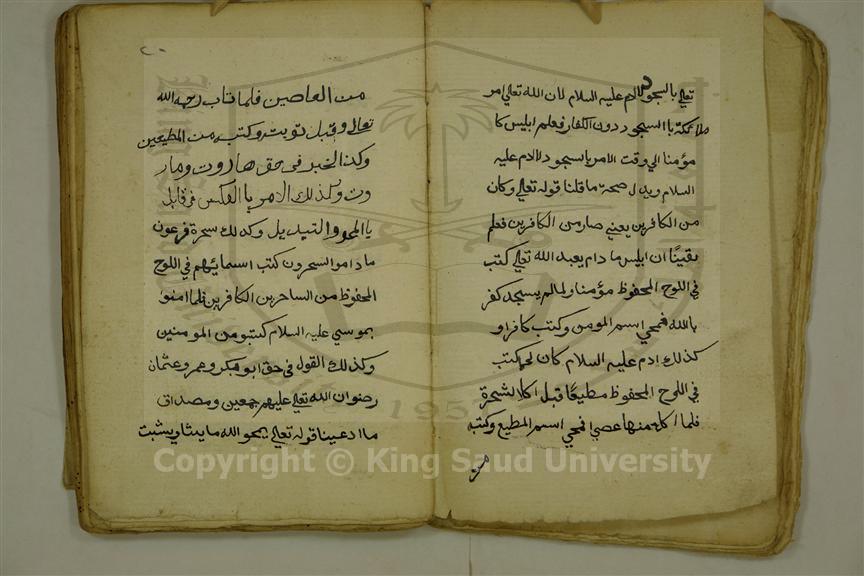 تعالي بالسجود لادم عليه السلام لان الله تعالي امر
ملائكة باالسجود دون الكفار فعلم ابليس كا
مؤمنا الي وقت الامر بالسجود لادم عليه
السلام ويدل صحة ما قلنا قوله تعالي وكان
من الكافرين يعني صار من الكافرين فعلم
يقينًا ان ابليس ما دام يعبد الله تعالي كتب
في اللوح المحفوظ مؤمنا ولما لم يسجد كفر
بالله فمحي اسم المومن وكتب كافرا و
كذلك ادم عليه السلام كان كتب
في اللوح المحفوظ مطيعًا قبل اكل الشجرة
فلما اكل منها عصي فمحي اسم المطيع وكتب
من
٢٠
من العاصين فلما تاب رحمه الله
تعالي وقبل توبته وكتب من المطيعين
وكذا الخبر في حق هاروت ومار
وت وكذلك الامر باالعكس في قابل
باالمحو والتبديل وكذلك سحرة فرعون
ما داموا السحرون كتب اسمائهم في اللوح
المحفوظ من الساحرين الكافرين فلما امنو
بموسي عليه السلام كتبو من المومنين
وكذلك القول في حق ابو بكر وعمر وعثمان
رضوان الله تعالي عليهم جمعين ومصداق
ما ادعينا قوله تعالي يمحو الله ما يشاء ويثبت
Copyright © King Saud University
1957